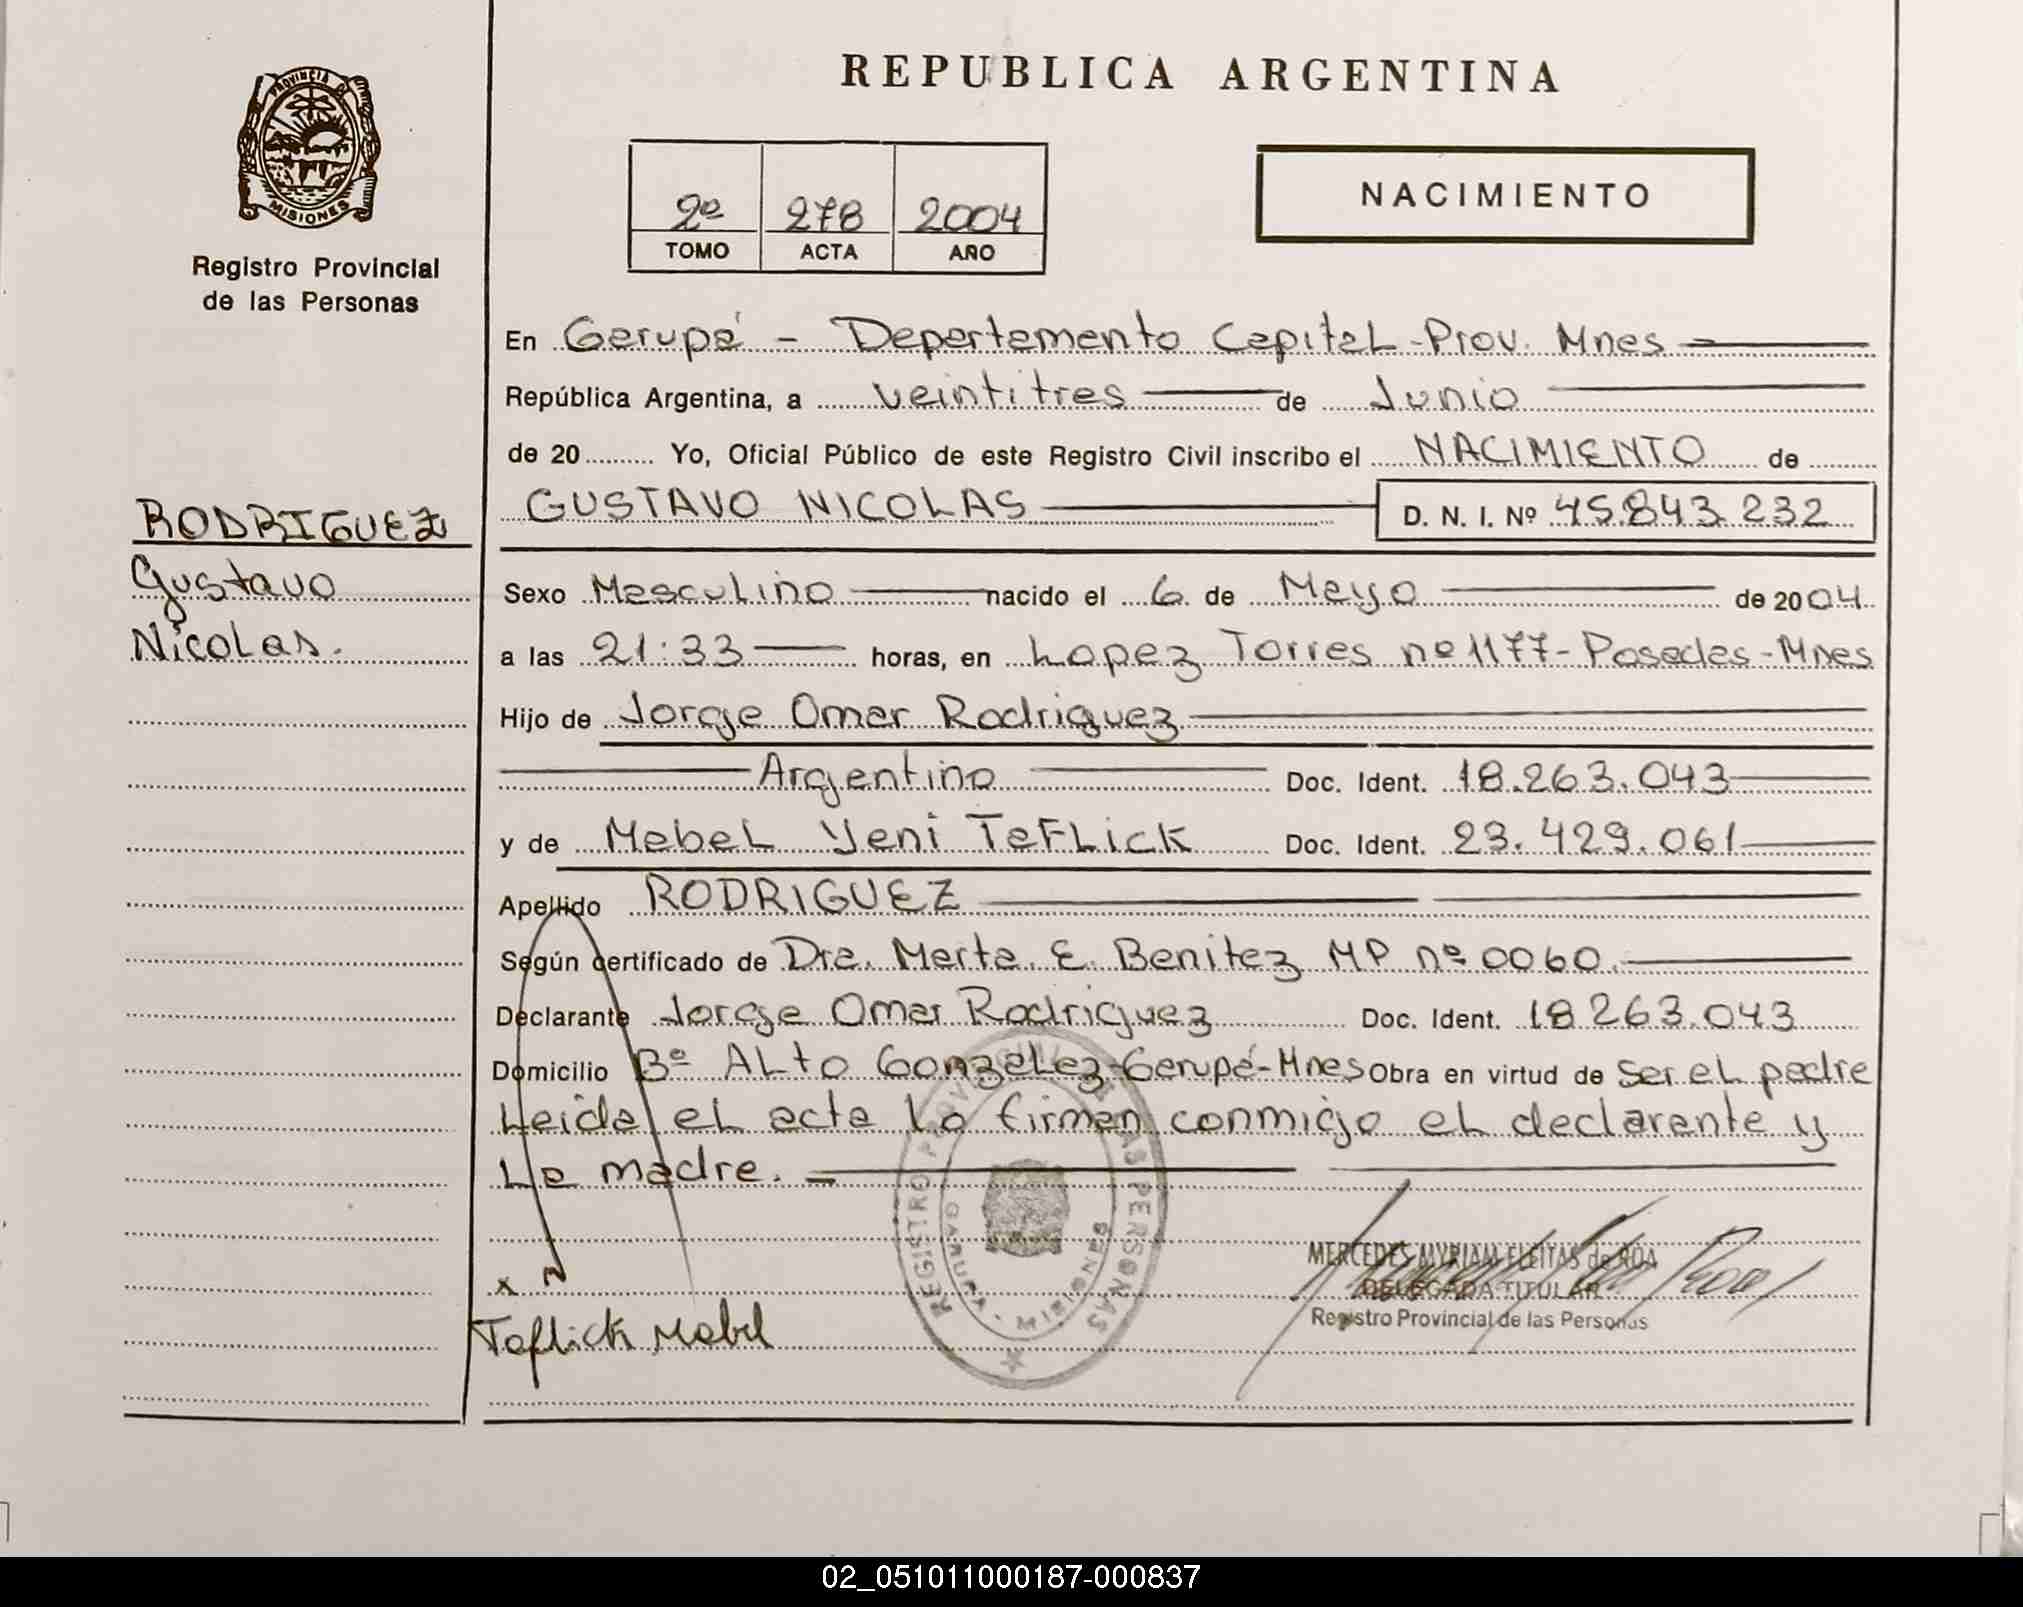 PROVINCIA DE
MISIONES
Registro Provincial
de las Personas
REPUBLICA ARGENTINA
2º 278 2004
TOMO ACTA AÑO
NACIMIENTO
En Garupá - Departamento Capital - Prov. Mnes
República Argentina, a veintitres de Junio
de 20 Yo, Oficial Público de este Registro Civil inscribo el NACIMIENTO de
GUSTAVO NICOLAS D. N. I. Nº 45.843.232
RODRIGUEZ
Gustavo
Nicolas.
Sexo Masculino nacido el 6 de Mayo de 2004
a las 21:33 horas, en Lopez Torres nº 1177 - Posadas - Mnes
Hijo de Jorge Omar Rodriguez
Argentino Doc. Ident. 18.263.043
y de Mabel Yeni Teflick Doc. Ident. 23.429.061
Apellido RODRIGUEZ
Según certificado de Dra. Marta E. Benitez MP nº 0060.
Declarante Jorge Omar Rodriguez Doc. Ident. 18263.043
Domicilio Bº Alto Gonzalez - Garupá - Mnes Obra en virtud de ser el padre
Leida el acta la firman conmigo el declarante y
La madre.
REGISTRO PROVINCIAL DE LAS PERSONAS
GARUPA - MISIONES
MERCEDES MYRIAM FLEITAS de ROA
DELEGADA TITULAR
Registro Provincial de las Personas
x
Teflick Mabel
02_051011000187-000837